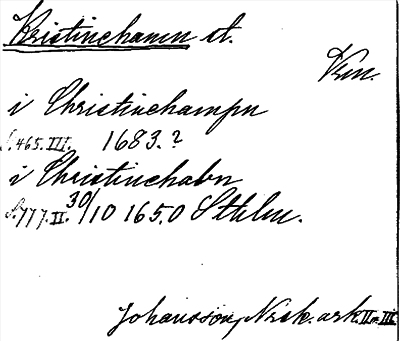 Kristinehamn st.
Vrm.
i Christinehampn
S. 465. III. 1683.?
i Christinehabn
S. 777. II. 30/10 1650 Sthlm.
Johansson, Nork. ark. II-III